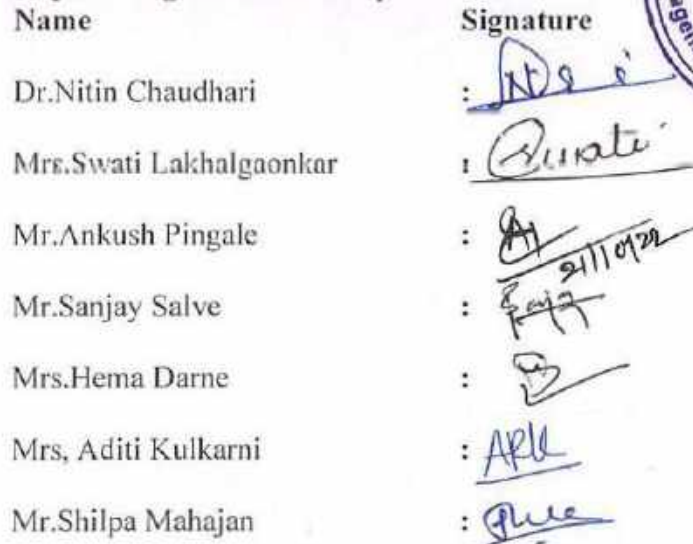 Name Signature
Dr.Nitin Chaudhari :
Mrs.Swati Lakhalgaonkar : Swati
Mr.Ankush Pingale :
21/10/22
Mr.Sanjay Salve :
Mrs.Hema Darne :
Mrs, Aditi Kulkarni : ARK
Mr.Shilpa Mahajan :